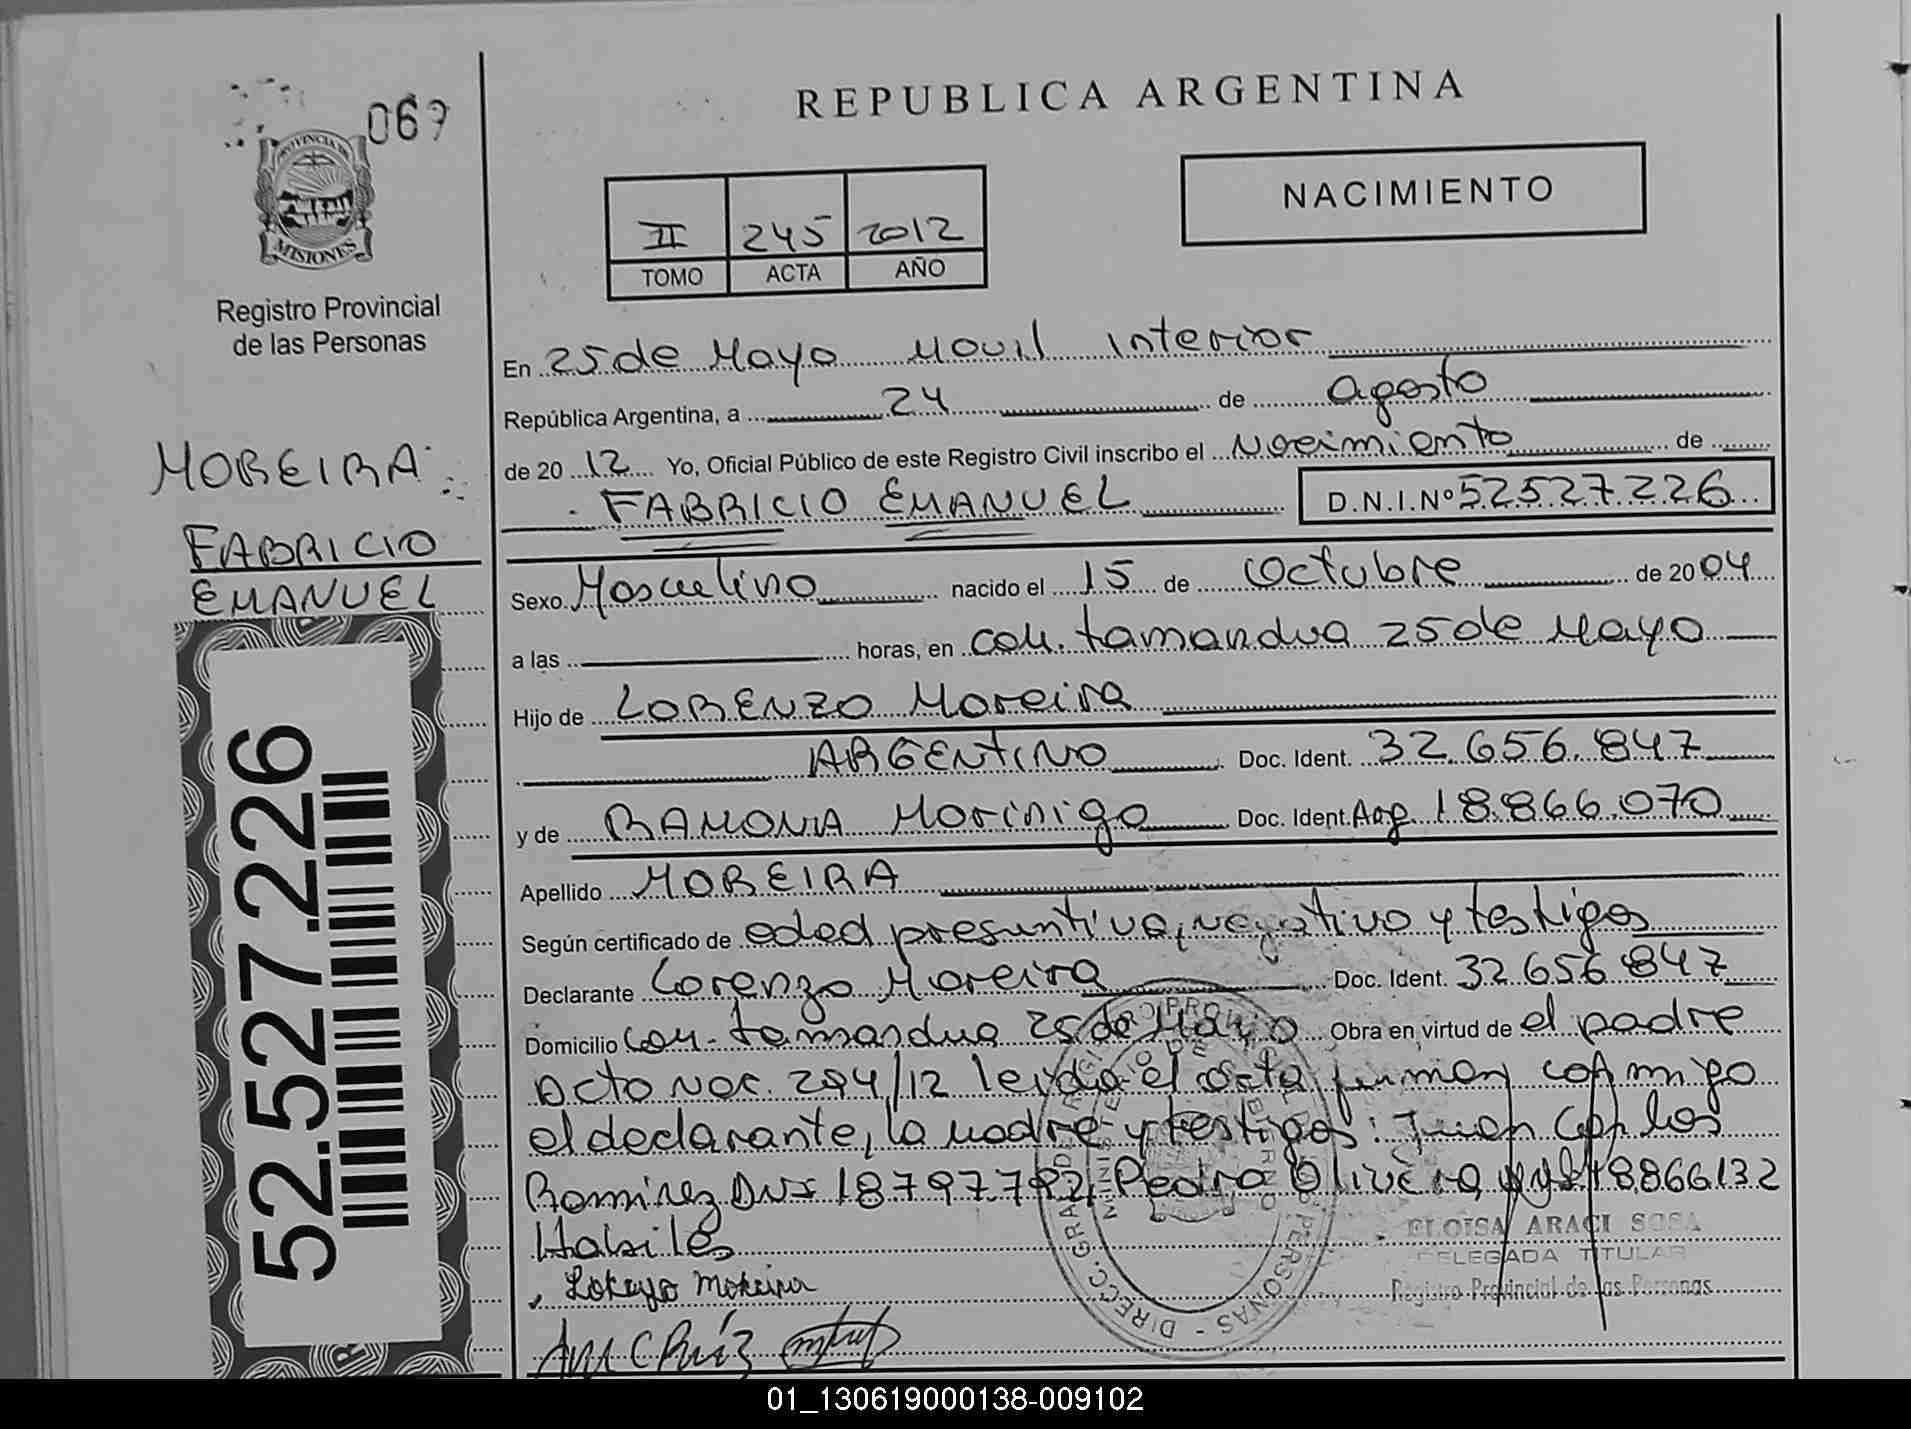 069
PROVINCIA DE
MISIONES
Registro Provincial
de las Personas
MOREIRA
FABRICIO
EMANUEL
52.527.226
REPUBLICA ARGENTINA
NACIMIENTO
II 245 2012
TOMO ACTA AÑO
En 25 de Mayo Movil Interior
República Argentina, a 24 de agosto
de 20 12 Yo, Oficial Público de este Registro Civil inscribo el Nacimiento de
FABRICIO EMANUEL D.N.I.Nº 52527226
Sexo Masculino nacido el 15 de Octubre de 20 04
a las horas, en Col. tamandua 25 de Mayo
Hijo de LORENZO Moreira
ARGENTINO Doc. Ident. 32.656.847
y de RAMONA Morinigo Doc. Ident. Arg 18.866.070
Apellido MOREIRA
Según certificado de edad presuntiva, negativo y testigos
Declarante Lorenzo Moreira Doc. Ident. 32.656.847
Domicilio Col. tamandua 25 de Mayo Obra en virtud de el padre
Acta Nac. 294/12 leida el acta firman conmigo
el declarante, la madre y testigos: Juan Carlos
Ramirez DNI 18797792, Pedro Olivera 18866132
Habiles
ELOISA ARACI SOSA
DELEGADA TITULAR
Registro Provincial de las Personas
01_130619000138-009102